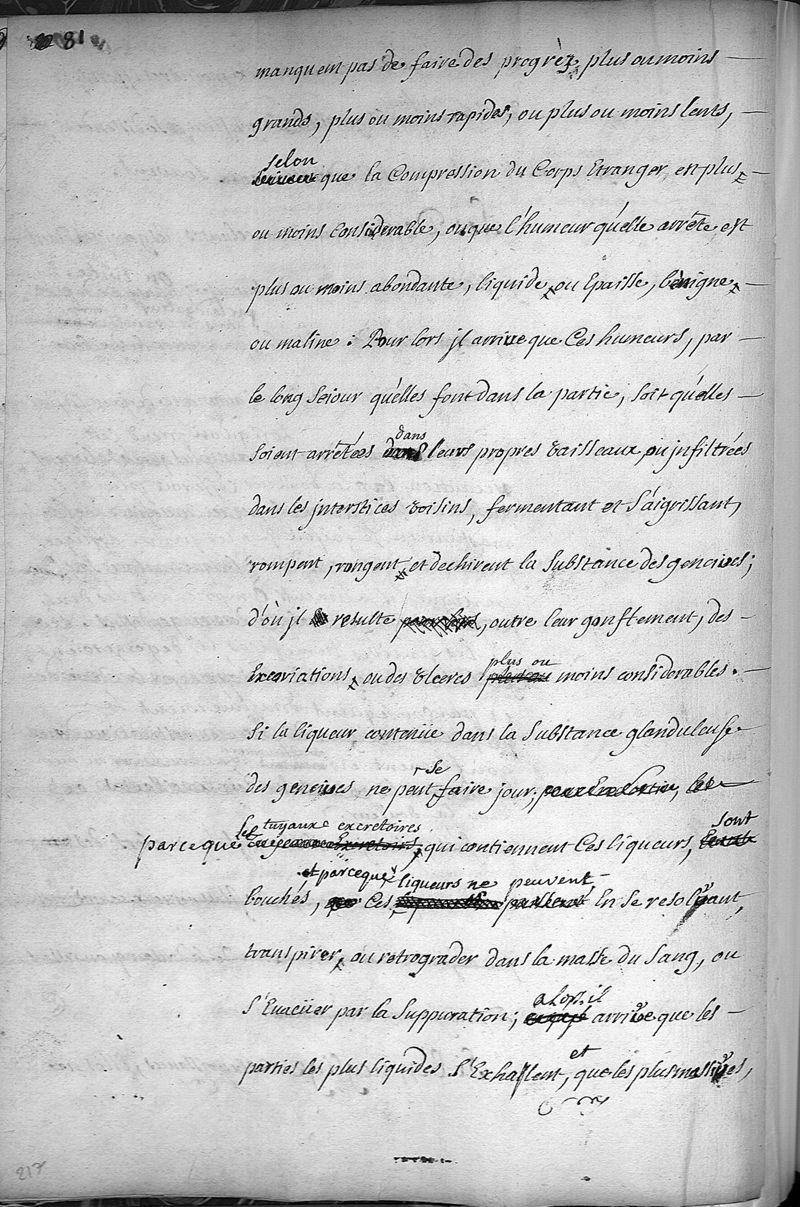 81
manquent pas de faire des progrèz, plus ou moins
grands, plus ou moins rapides, ou plus ou moins lents,
selon
que la Compression du Corps Etranger, est plus,
ou moins considerable, ou que l'humeur qu'elle arrête est
plus ou moins abondante, liquide, ou Epaisse, bénigne,
ou maline : Pour lors jl arrive que Ces humeurs, par
le long séiour qu'elles font dans la partie, soit qu'elles
dans
soient arrêtées dans leurs propres vaisseaux, ou jnfiltrées
dans les jnterstices voisins, fermentant et s'aigrissant,
rompent, rongent, et dechirent la substance des gencives;
d'où jl resulte, outre leur gonflement, des
plus ou
Excoriations, ou des vlceres plus ou moins considerables.
Si la liqueur contenüe dans la Substance glanduleuse
se
des gencives ne peut faire jour,
les tuyaux excretoires sont
parceque qui contiennent Ces liqueurs,
et parceque liqueurs ne peuvent
bouchés, Ces En se resolvant,
transpirer, ou retrograder dans la masse du Sang, ou
alors il
s'Evacüer par la Suppuration; arrive que les
et
parties les plus liquides s'Exhallent, que les plus massives,
217